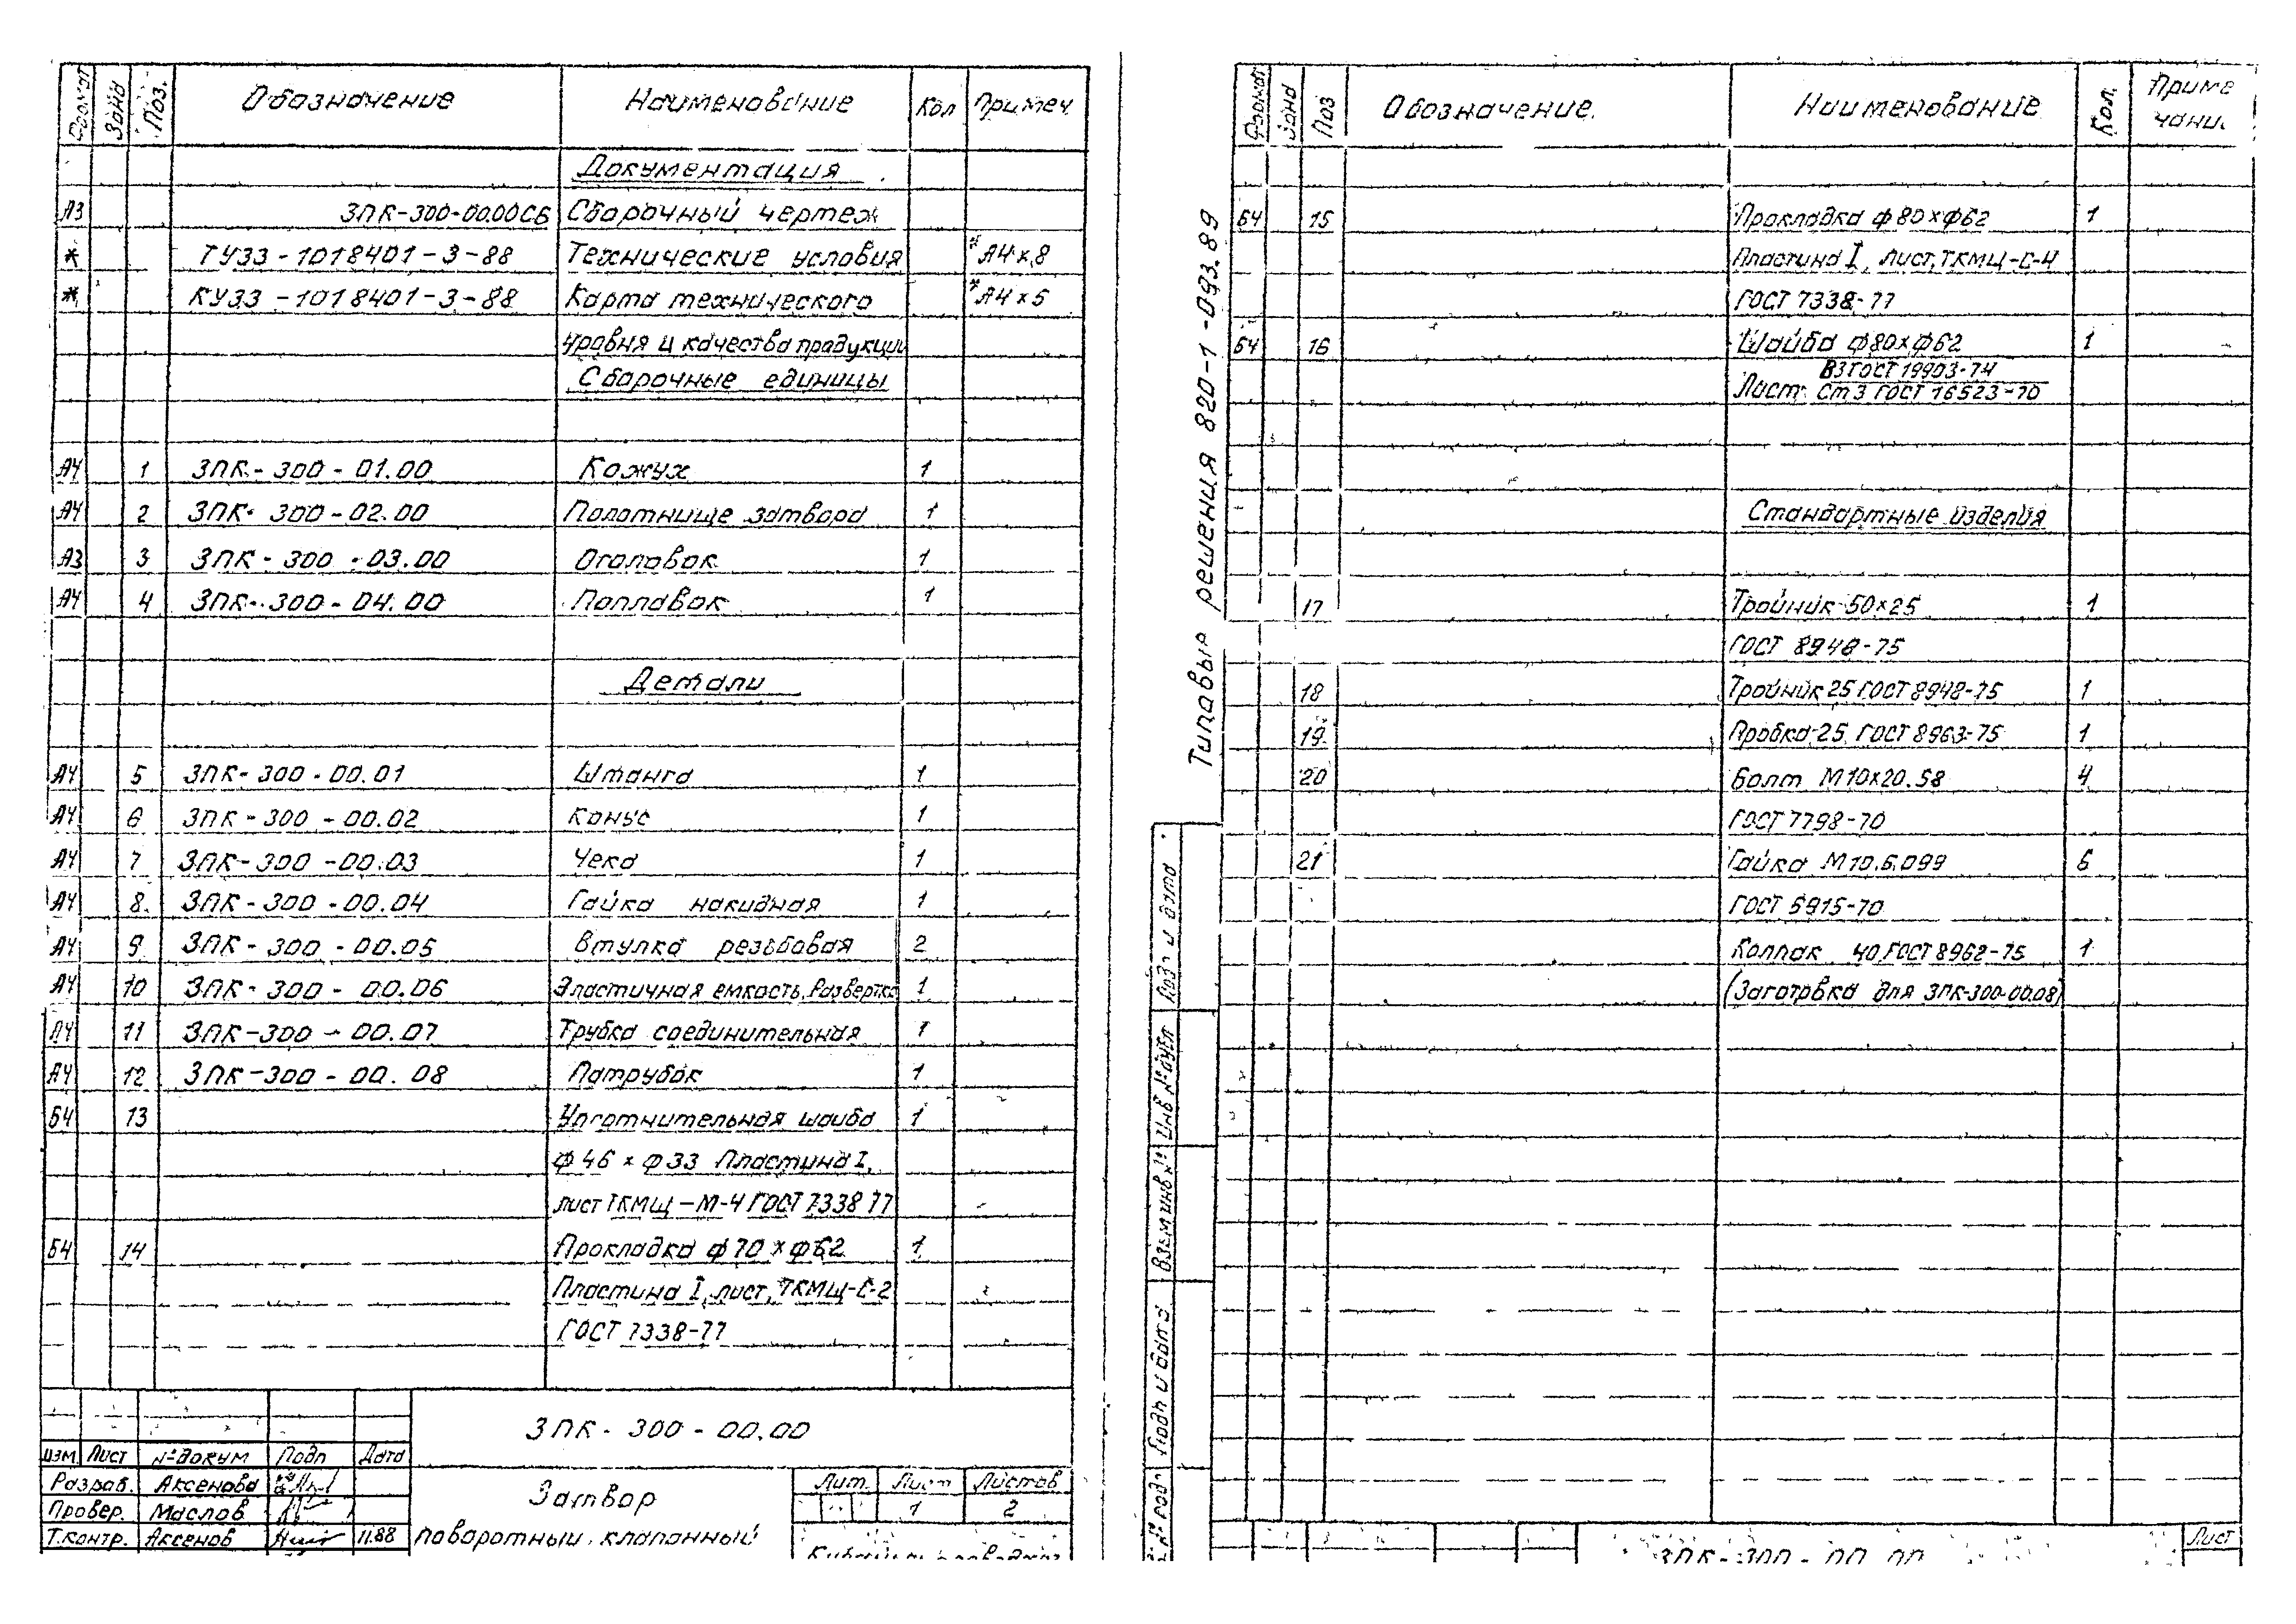 Формат Зона Поз. Обозначение Наименование Кол Примеч.
Документация
А3 ЗПК-300-00.00СБ Сборочный чертеж
* ТУ33-1018401-3-88 Технические условия *А4х8
* КУ33-1018401-3-88 Карта технического *А4х5
уровня и качества продукции
Сборочные единицы
А4 1 ЗПК-300-01.00 Кожух 1
А4 2 ЗПК-300-02.00 Полотнище затвора 1
А3 3 ЗПК-300-03.00 Оголовок 1
А4 4 ЗПК-300-04.00 Поплавок 1
Детали
А4 5 ЗПК-300-00.01 Штанга 1
А4 6 ЗПК-300-00.02 Конус 1
А4 7 ЗПК-300-00.03 Чека 1
А4 8. ЗПК-300-00.04 Гайка накидная 1
А4 9 ЗПК-300-00.05 Втулка резьбовая 2
А4 10 ЗПК-300-00.06 Эластичная емкость, Развертка 1
А4 11 ЗПК-300-00.07 Трубка соединительная 1
А4 12 ЗПК-300-00.08 Патрубок 1
Б4 13 Уплотнительная шайба 1
ф46хф33 Пластина I,
лист ТКМЩ-М-4 ГОСТ 7338 77
Б4 14 Прокладка ф70хф62 1
Пластина I, лист, ТКМЩ-С-2
ГОСТ 7338-77
ЗПК-300-00.00
Изм Лист № докум Подп Дата
Разраб. Аксенова
Провер. Маслов
Т.контр. Аксенов 11.88
Затвор
поворотный клапанный
Лит. Лист Листов
1 2
Типовые решения 820-1-093.89
Формат Зона Поз Обозначение. Наименование Кол. Приме
чани.
Б4 15 Прокладка ф80хф62 1
Пластина I, Лист, ТКМЩ-С-4
ГОСТ 7338-77
Б4 16 Шайба ф80хф62 1
В3 ГОСТ 19903-74
Лист Ст3 ГОСТ 16523-70
Стандартные изделия
17 Тройник 50х25 1
ГОСТ 8948-75
18 Тройник 25 ГОСТ 8948-75 1
19 Пробка 25 ГОСТ 8963-75 1
20 Болт М10х20.58 4
ГОСТ 7798-70
21 Гайка М10.5.099 6
ГОСТ 5915-70
Колпак 40 ГОСТ 8962-75 1
(Заготовка для ЗПК-300-00.08)
Подп и дата
Инв № дубл
Взам инв №
Подп и дата
ЗПК-300-00.00
Лист